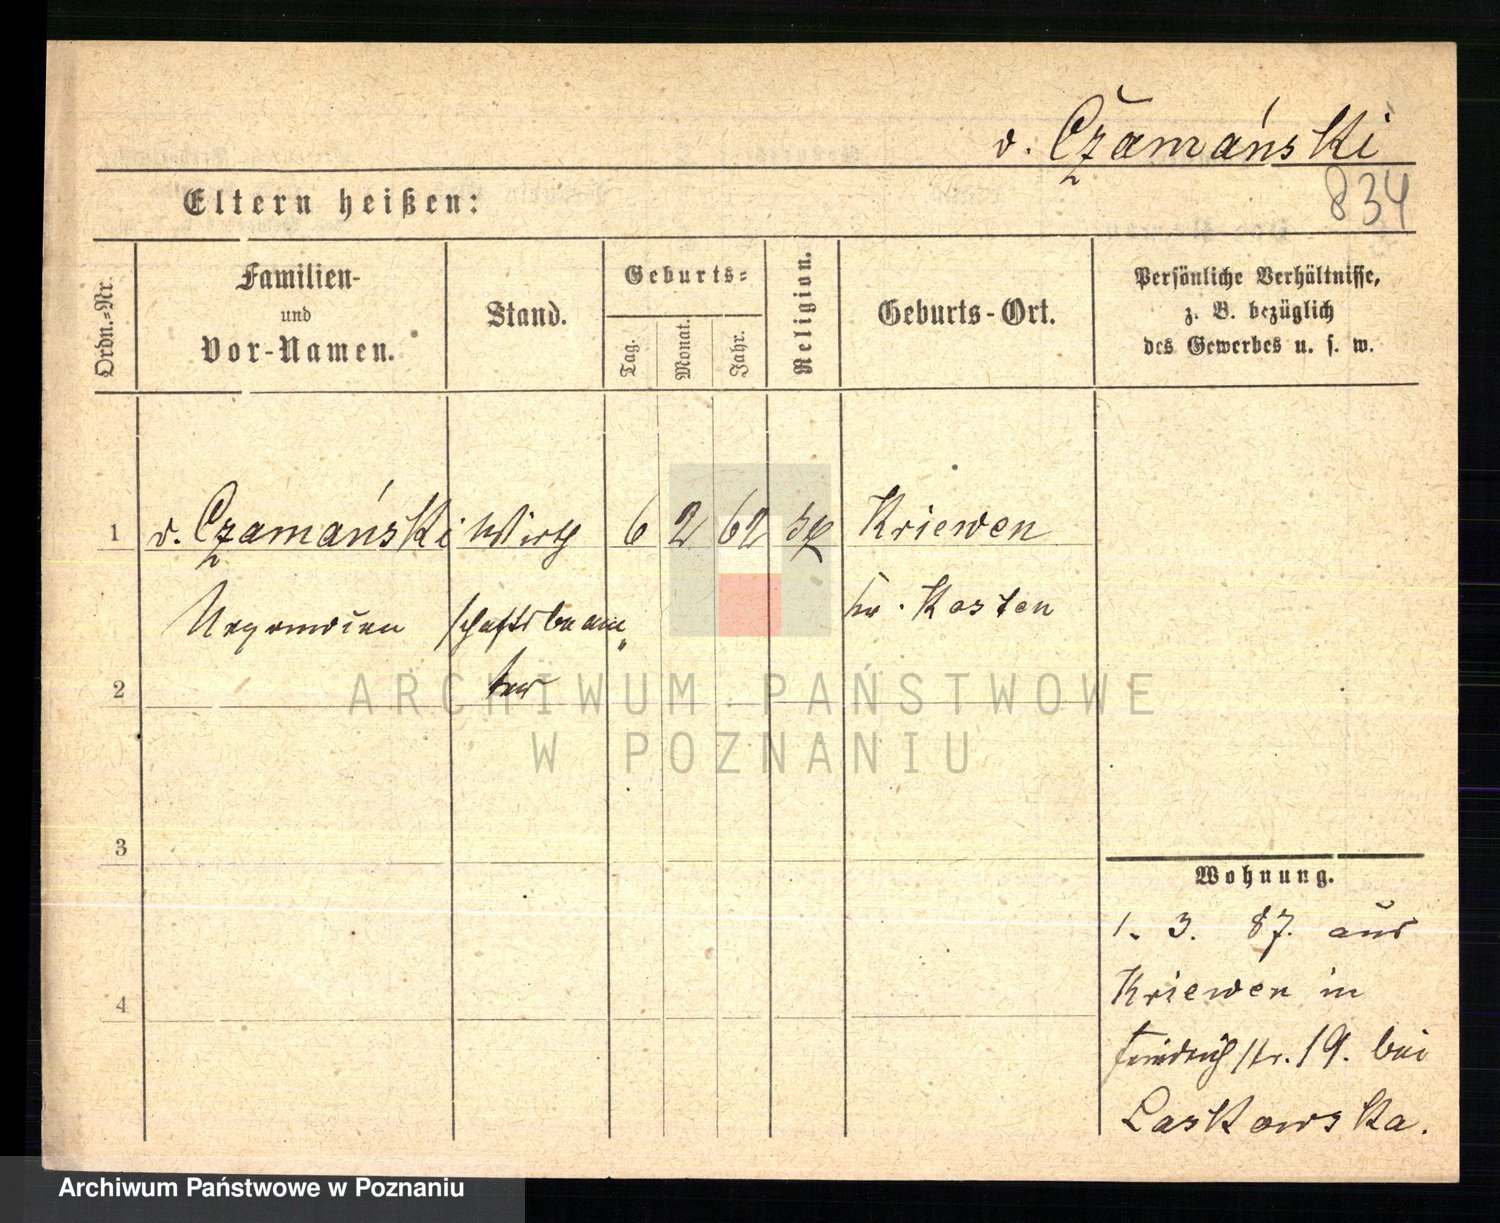 v. Czamański
834
Eltern heißen:
Ordn.-Nr.
Familien-
und
Vor-Namen.
Stand.
Geburts-
Tag.
Monat.
Jahr.
Religion.
Geburts-Ort.
Persönliche Verhältnisse,
z. B. bezüglich
des Gewerbes u. s. w.
1 v. Czamański Wirth 6 2 62 Kriewen
schaftsbeam„ Kr. Kosten
2 ter
ARCHIWUM PAŃSTWOWE
W POZNANIU
3
4
Wohnung.
1. 3. 87. aus
Kriewen in
Friedrichstr. 19. bei
Laskowska.
Archiwum Państwowe w Poznaniu